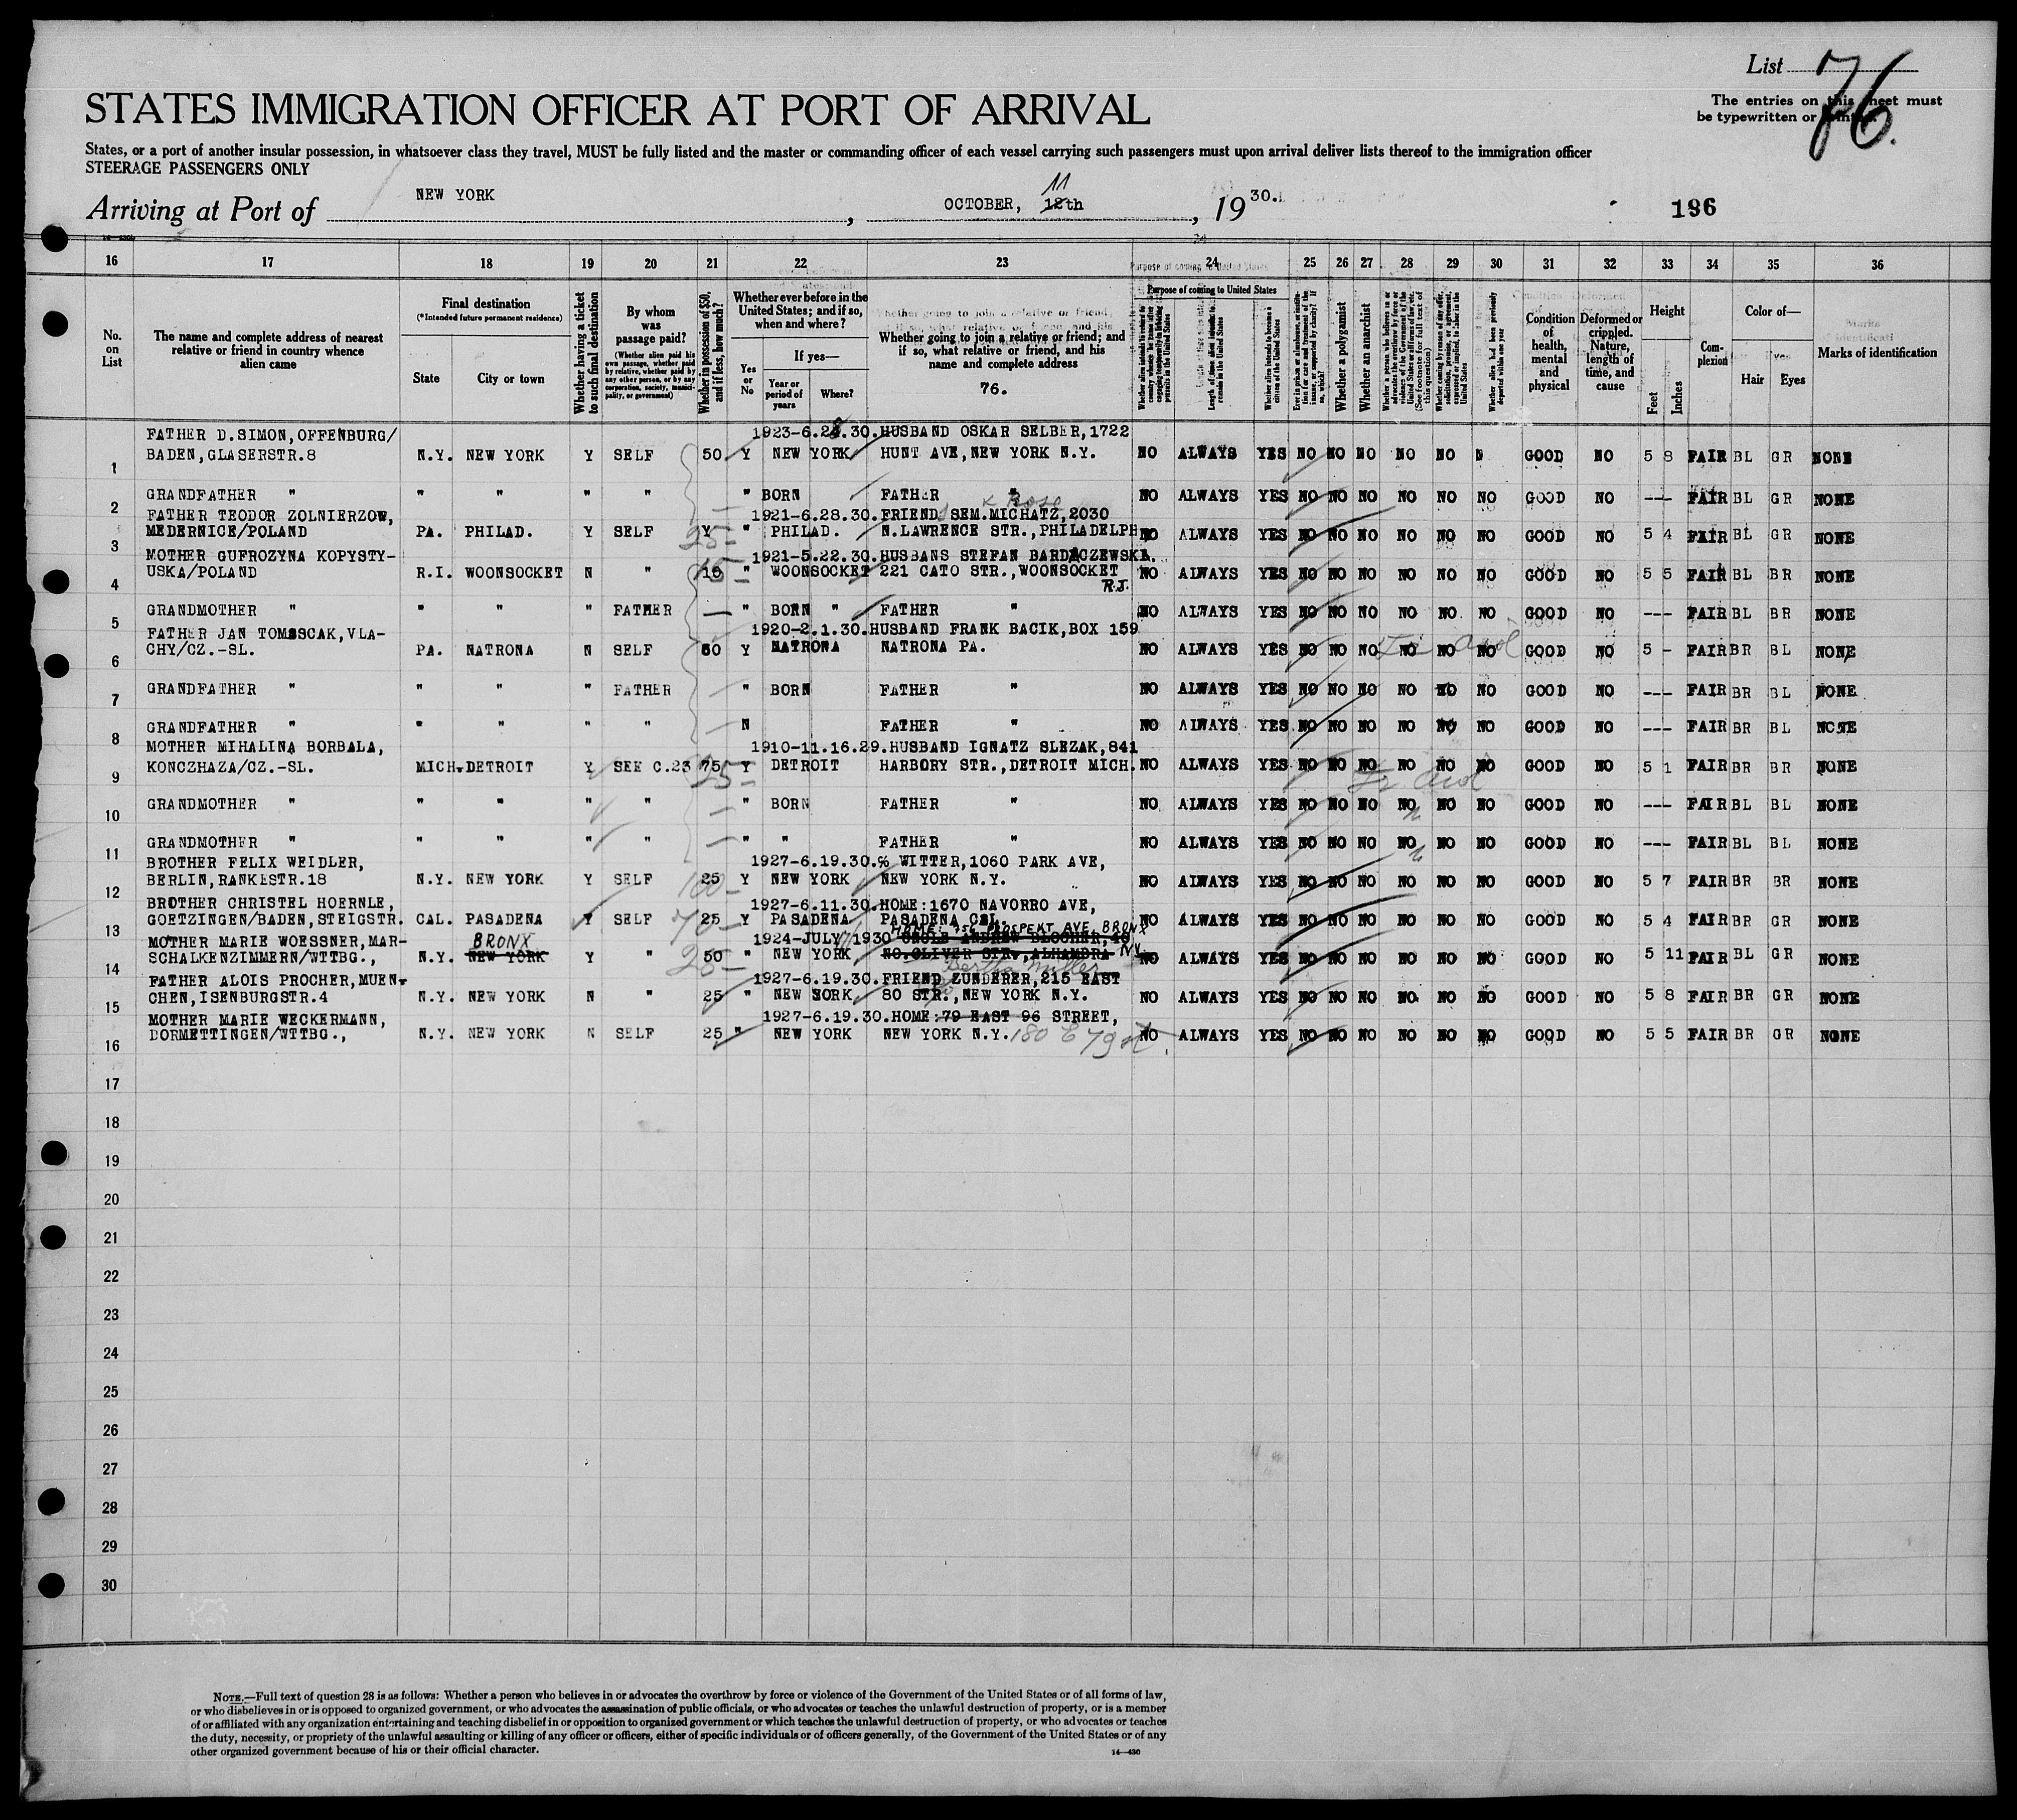 List 76
STATES IMMIGRATION OFFICER AT PORT OF ARRIVAL
The entries on this sheet must
be typewritten or printed.
76.
States, or a port of another insular possession, in whatsoever class they travel, MUST be fully listed and the master or commanding officer of each vessel carrying such passengers must upon arrival deliver lists thereof to the immigration officer
STEERAGE PASSENGERS ONLY
Arriving at Port of NEW YORK, OCTOBER, 12th 11, 1930.
186
16 17 18 19 20 21 22 23 24 25 26 27 28 29 30 31 32 33 34 35 36
No. on List
The name and complete address of nearest relative or friend in country whence alien came
Final destination
(*Intended future permanent residence)
State
City or town
Whether having a ticket to such final destination
By whom was passage paid?
(Whether alien paid his own passage, whether paid by relative, whether paid by any other person, or by any corporation, society, municipality, or government)
Whether in possession of $50, and if less, how much?
Whether ever before in the United States; and if so, when and where?
Yes or No
If yes—
Year or period of years
Where?
Whether going to join a relative or friend; and if so, what relative or friend, and his name and complete address
76.
Purpose of coming to United States
Length of time alien intends to remain in the United States
Whether alien intends to become a citizen of the United States
Whether a polygamist
Whether an anarchist
(See footnote for full text of this question)
Whether alien had been previously deported within one year
Condition of health, mental and physical
Deformed or crippled. Nature, length of time, and cause
Height
Feet
Inches
Complexion
Color of—
Hair
Eyes
Marks of identification
FATHER D.SIMON,OFFENBURG/ 1923-6.28.30. HUSBAND OSKAR SELBER,1722
1 BADEN,GLASERSTR.8 N.Y. NEW YORK Y SELF 50 Y NEW YORK HUNT AVE,NEW YORK N.Y. NO ALWAYS YES NO NO NO NO NO N GOOD NO 5 8 FAIR BL GR NONE
2 GRANDFATHER " " " " " " BORN FATHER " NO ALWAYS YES NO NO NO NO NO NO GOOD NO --- FAIR BL GR NONE
Rose
FATHER TEODOR ZOLNIERZOW, 1921-6.28.30. FRIEND SEM.MICHATZ,2030
3 MEDERNICE/POLAND PA. PHILAD. Y SELF Y 25- " PHILAD. N.LAWRENCE STR.,PHILADELPH NO ALWAYS YES NO NO NO NO NO NO GOOD NO 5 4 FAIR BL GR NONE
MOTHER GUFROZYNA KOPYSTY- 1921-5.22.30. HUSBANS STEFAN BARDACZEWSKA.
4 USKA/POLAND R.I. WOONSOCKET N " 15- " WOONSOCKET 221 CATO STR.,WOONSOCKET R.I. NO ALWAYS YES NO NO NO NO NO NO GOOD NO 5 5 FAIR BL BR NONE
5 GRANDMOTHER " " " " FATHER — " BORN " FATHER " NO ALWAYS YES NO NO NO NO NO NO GOOD NO --- FAIR BL BR NONE
FATHER JAN TOMSSCAK,VLA- 1920-2.1.30. HUSBAND FRANK BACIK,BOX 159
6 CHY/CZ.-SL. PA. NATRONA N SELF 50 Y NATRONA NATRONA PA. NO ALWAYS YES NO NO NO NO NO NO GOOD NO 5 - FAIR BR BL NONE
7 GRANDFATHER " " " " FATHER — " BORN FATHER " NO ALWAYS YES NO NO NO NO NO NO GOOD NO --- FAIR BR BL NONE
8 GRANDFATHER " " " " " — N FATHER " NO ALWAYS YES NO NO NO NO NO NO GOOD NO --- FAIR BR BL NONE
MOTHER MIHALINA BORBALA, 1910-11.16.29. HUSBAND IGNATZ SLEZAK,841
9 KONCZHAZA/CZ.-SL. MICH. DETROIT Y SEE C.23 75 Y DETROIT HARBORY STR.,DETROIT MICH. NO ALWAYS YES NO NO NO NO NO NO GOOD NO 5 1 FAIR BR BR NONE
10 GRANDMOTHER " " " " " — " BORN FATHER " NO ALWAYS YES NO NO NO NO NO NO GOOD NO --- FAIR BL BL NONE
11 GRANDMOTHER " " " " " — " " FATHER " NO ALWAYS YES NO NO NO NO NO NO GOOD NO --- FAIR BL BL NONE
BROTHER FELIX WEIDLER, 1927-6.19.30. % WITTER,1060 PARK AVE,
12 BERLIN,RANKESTR.18 N.Y. NEW YORK Y SELF 25 100- Y NEW YORK NEW YORK N.Y. NO ALWAYS YES NO NO NO NO NO NO GOOD NO 5 7 FAIR BR BR NONE
BROTHER CHRISTEL HOERNLE, 1927-6.11.30. HOME:1670 NAVORRO AVE,
13 GOETZINGEN/BADEN,STEIGSTR. CAL. PASADENA Y SELF 25 70- Y PASADENA PASADENA CAL. NO ALWAYS YES NO NO NO NO NO NO GOOD NO 5 4 FAIR BR GR NONE
HOME: 756 PROSPEKT AVE BRONX N.Y.
MOTHER MARIE WOESSNER,MAR- BRONX 1924-JULY 1930 UNCLE ANDREW BLOCHER,40
14 SCHALKENZIMMERN/WTTBG., N.Y. NEW YORK Y " 50 25- " NEW YORK NO.OLIVER STR.,ALHAMBRA NO ALWAYS YES NO NO NO NO NO NO GOOD NO 5 11 FAIR BL GR NONE
Bertha Muller
FATHER ALOIS PROCHER,MUEN- 1927-6.19.30. FRIEND ZUNDERER,215 EAST
15 CHEN,ISENBURGSTR.4 N.Y. NEW YORK N " 25 " NEW YORK 80 STR.,NEW YORK N.Y. NO ALWAYS YES NO NO NO NO NO NO GOOD NO 5 8 FAIR BR GR NONE
MOTHER MARIE WECKERMANN, 1927-6.19.30. HOME:79 EAST 96 STREET,
16 DORMETTINGEN/WTTBG., N.Y. NEW YORK N SELF 25 " NEW YORK NEW YORK N.Y. 180 E 79 st. NO ALWAYS YES NO NO NO NO NO NO GOOD NO 5 5 FAIR BR GR NONE
17
18
19
20
21
22
23
24
25
26
27
28
29
30
NOTE.—Full text of question 28 is as follows: Whether a person who believes in or advocates the overthrow by force or violence of the Government of the United States or of all forms of law,
or who disbelieves in or is opposed to organized government, or who advocates the assassination of public officials, or who advocates or teaches the unlawful destruction of property, or is a member
of or affiliated with any organization entertaining and teaching disbelief in or opposition to organized government or which teaches the unlawful destruction of property, or who advocates or teaches
the duty, necessity, or propriety of the unlawful assaulting or killing of any officer or officers, either of specific individuals or of officers generally, of the Government of the United States or of any
other organized government because of his or their official character.
14—430